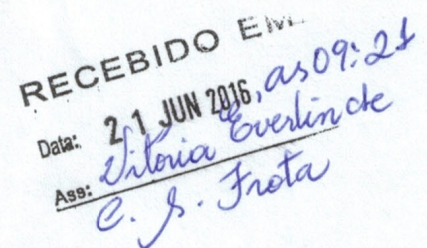 RECEBIDO EM
Data: 21 JUN 2016, as 09:21
Ass: Vitoria Everlin de
C. S. Frota